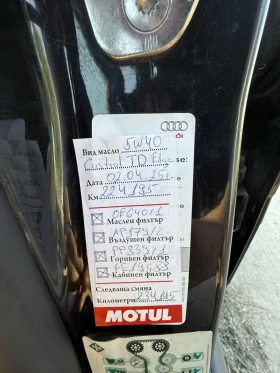 Вид масло 5W40
Castrol TD
Дата 02.04.25г.
Км 224195
OE640/1
Маслен филтър
AP179/2
Въздушен филтър
Горивен филтър
Кабинен филтър
Следваща смяна
Километри 234195
MOTUL